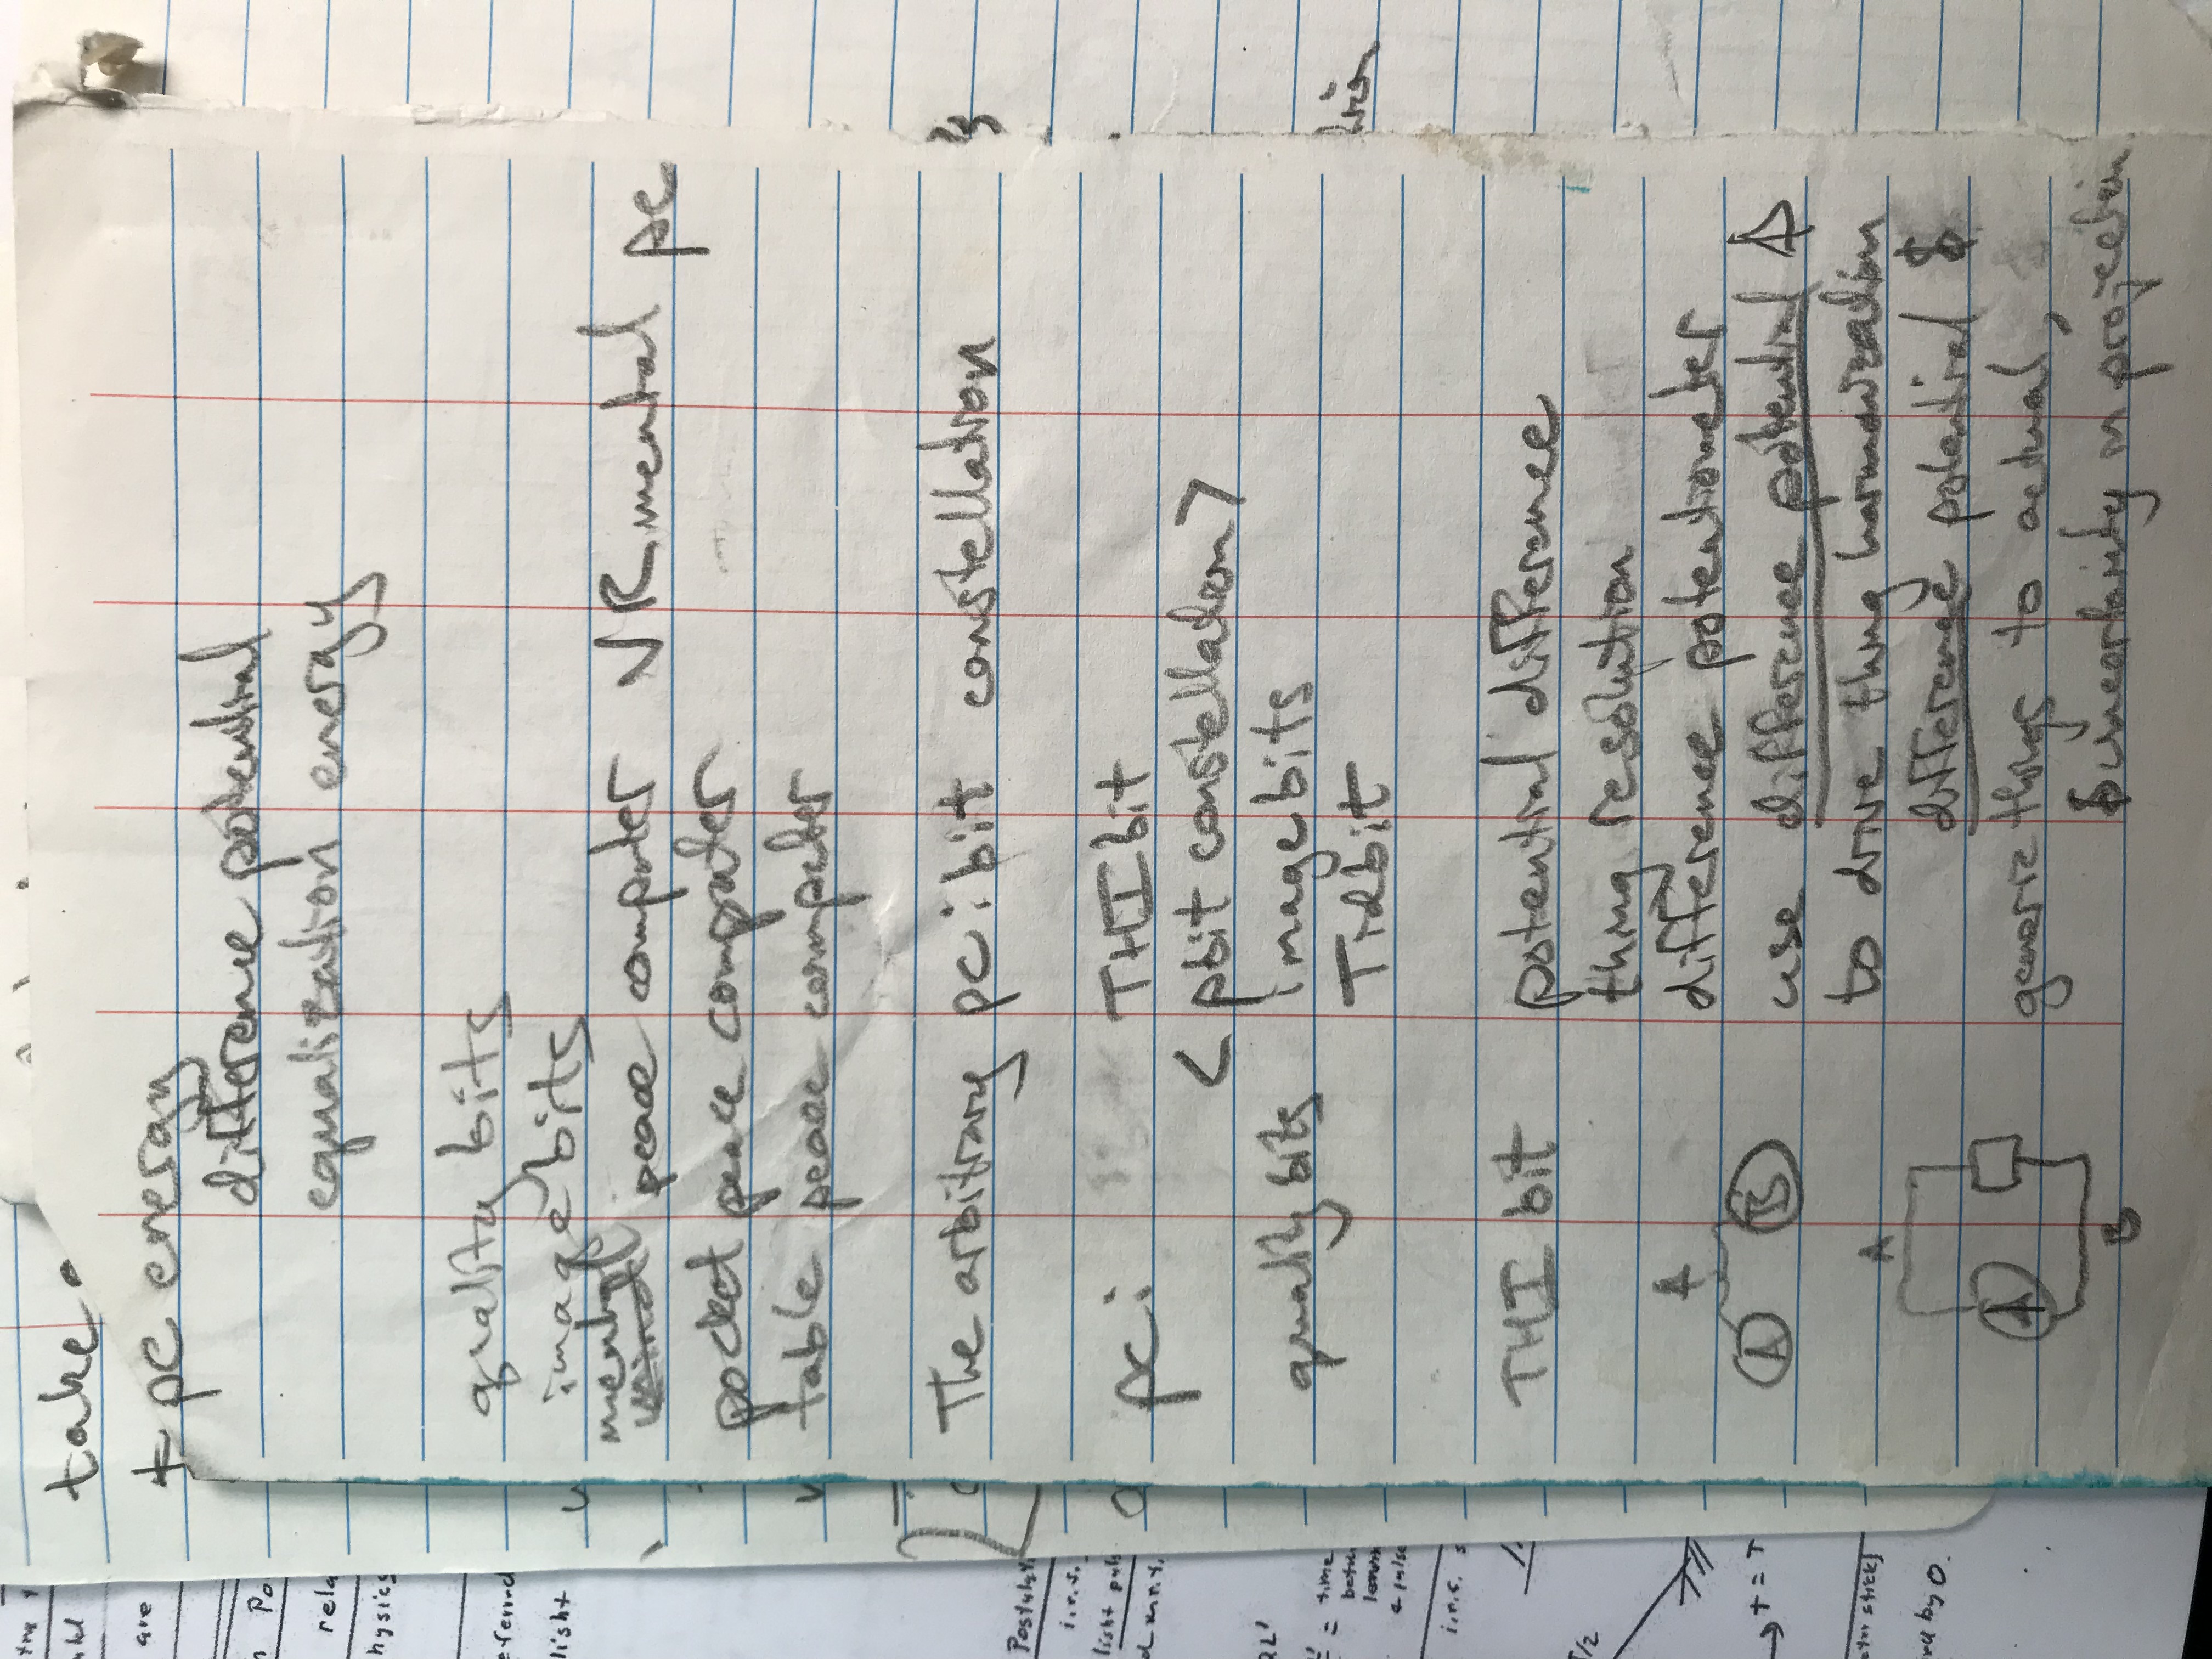 take
pc energy
difference potential
equalization energy
quality bits
image bits
mental
mind peace computer VR mental pc
pocket peace computer
table peace computer
The arbitrary pc i bit constellation
pci THI bit
< pbit constellation >
quality bits imagebits
Tidbit
THI bit potential difference
thing resolution
A difference potentiometer
A B use difference potential
to drive thing harmonization
A difference potential $
generic things to actual,
$ uncertainty in projection
B
are
Po
rela
hysics
eferred
light
Postulat
i.r.s.
light puls
= time
betw
& pulse
i.r.s. s
T/2
→ t = T
eter stick)
red by O.